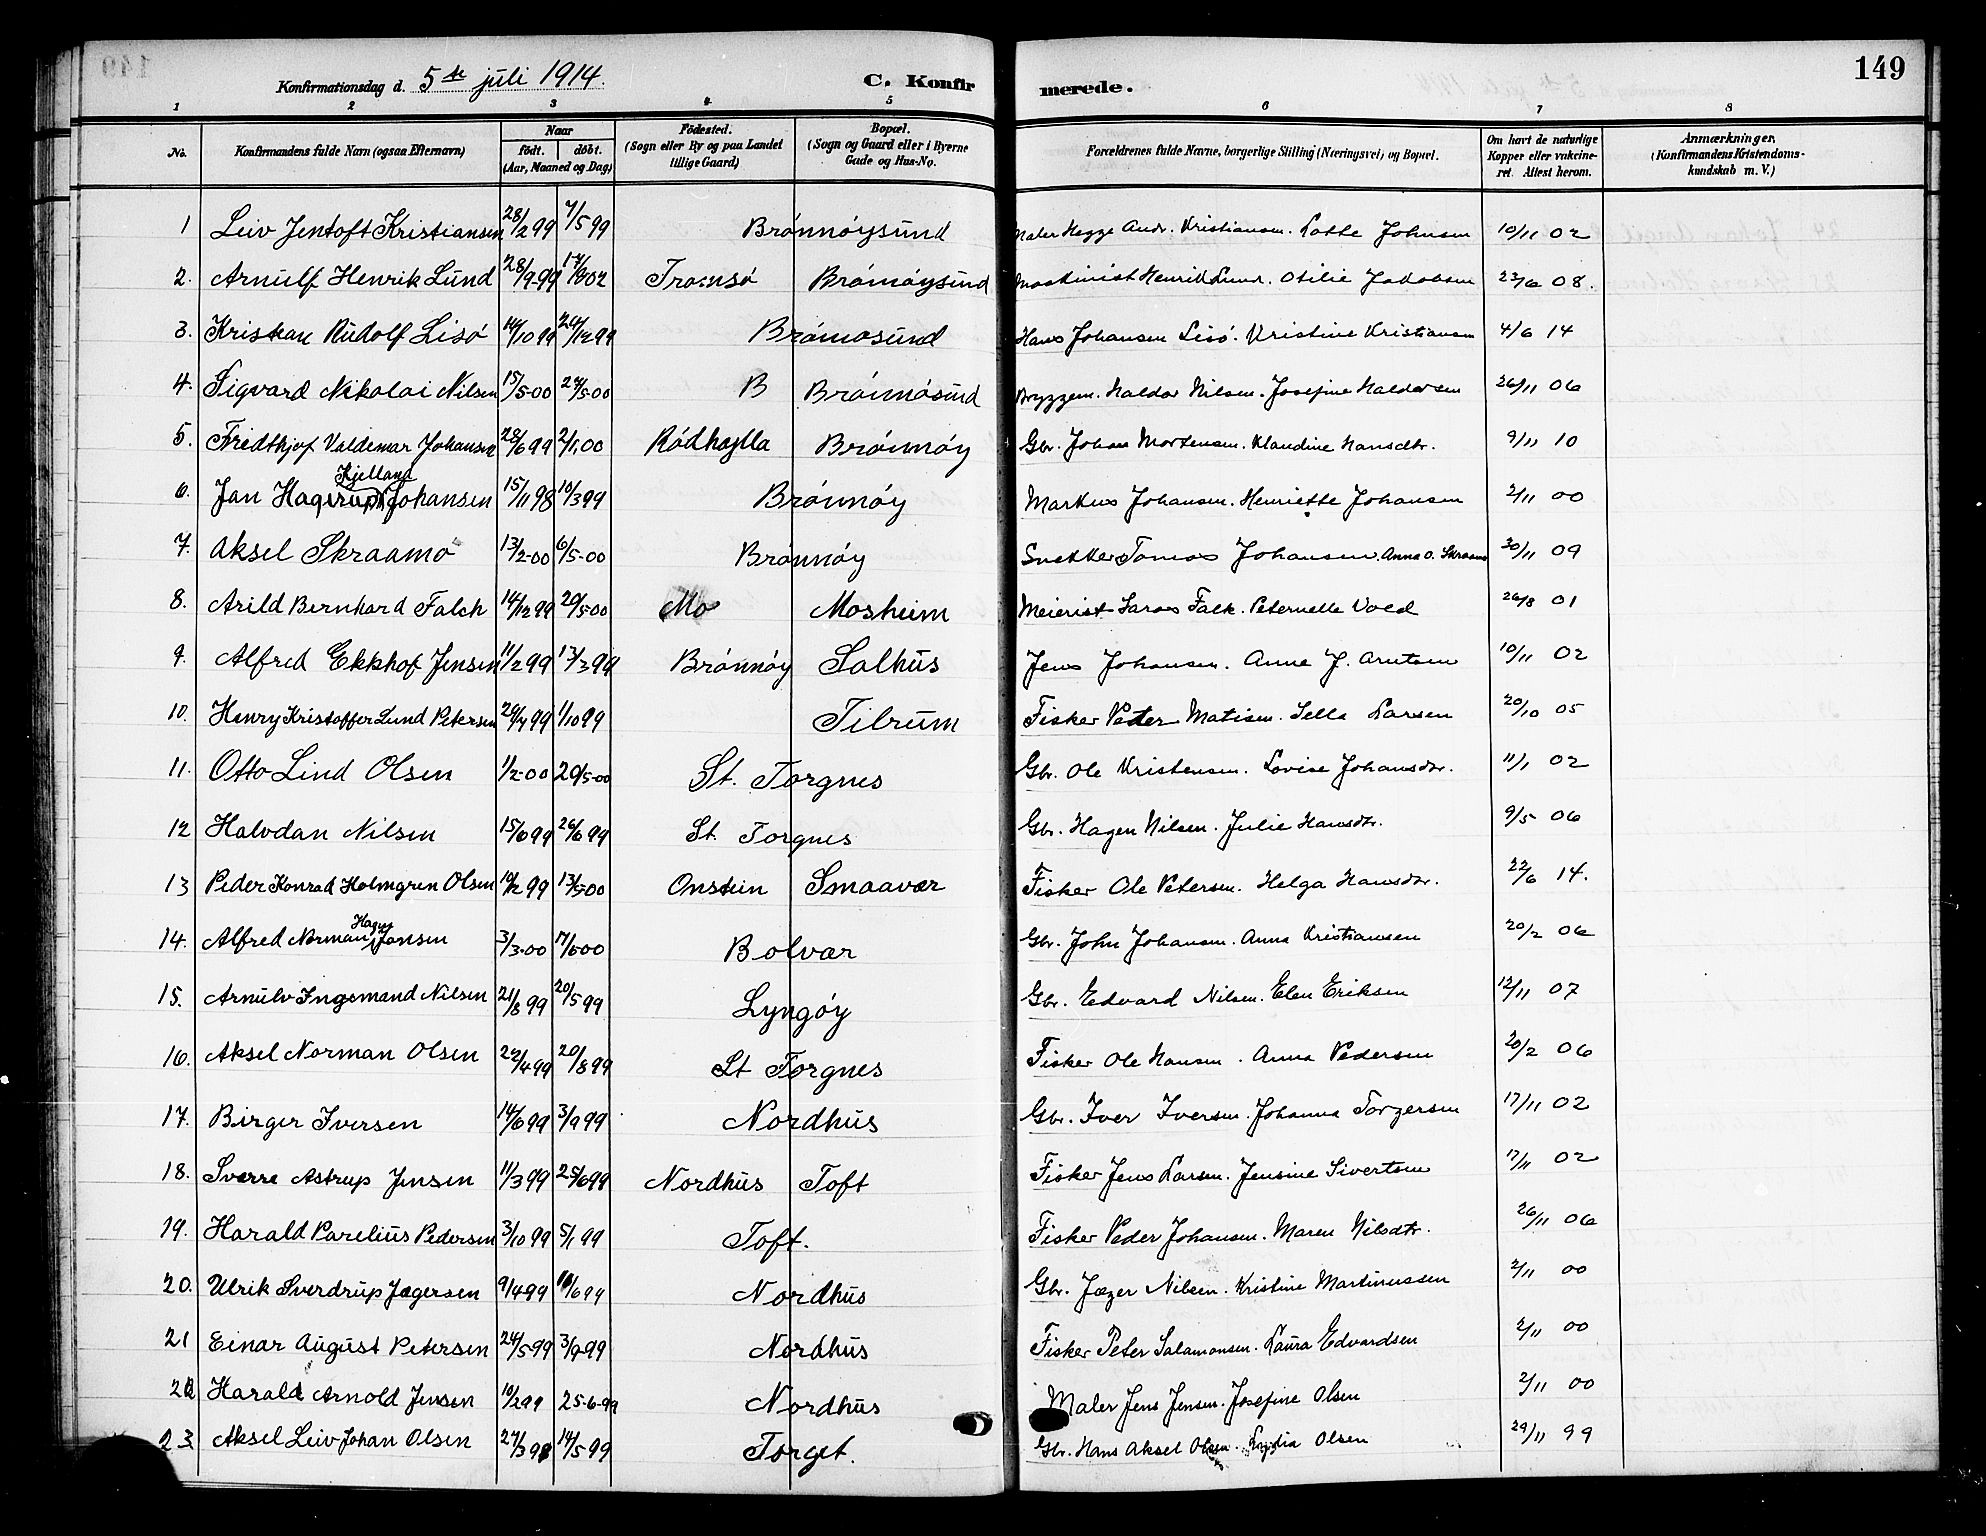 149
Konfirmationsdag d. 5te juli 1914.
C. Konfirmerede.
1 2 3 4 5 6 7 8
No. Konfirmandens fulde Navn (ogsaa Efternavn) Naar født. døbt. (Aar, Maaned og Dag) Fødested. (Sogn eller By og paa Landet tillige Gaard) Bopæl. (Sogn og Gaard eller i Byerne Gade og Hus-No. Forældrenes fulde Navne, borgerlige Stilling (Næringsvei) og Bopæl. Om havt de naturlige Kopper eller vakcineret. Attest herom. Anmærkninger, (Konfirmandens Kristendomskundskab m. V.)
1 Leiv Jentoft Kristiansen 28/2 99 7/5 99 Brønnøysund Maler Hegge Andr. Kristiansen. Lotte Johnsen 10/11 02
2. Arnulf Henrik Lund 28/9-99 Tromsø Brønnøysund Maskinist Henrik Lund. Otilie Jakobsen 23/6 08.
3. Kristian Rudolf Lisø 14/10 99 24/12 99 Brønnøsund Hans Johansen Lisø. Kristine Kristiansen 4/6 14
4. Sigvard Nikolai Nilsen 15/5-00 24/5-00 B Brønnøsund Bryggem. Haldor Nilsen. Josefine Haldorsen 26/11 06
5. Fredthjof Valdemar Johansen 28/6 99 2/1,00 Rødhylla Brønnøy Gbr. Johan Mortensen. Klaudine Hansdtr. 9/11 10
6. Jan Hagerup Kjelland Johansen 15/11 98 10/3 99 Brønnøy Markus Johansen. Henriette Johansen 2/11 00
7. Aksel Skraamo 13/2-00 6/5-00 Brønnøy Snekker Tomas Johansen. Anna O. Skraamo 30/11 09
8. Arild Bernhard Falch 14/12 99 20/5-00 Mo Mosheim Meierist Lars Falk. Peternelle Vold 26/8 01
9. Alfred Ekkhof Jensen 11/2 99 13/3 99 Brønnøy Salhus Jens Johansen. Anne J. Arntsen 10/11 02
10. Henry Kristoffer Lund Petersen 29/7 99 1/10 99 Tilrum Fisker Peder Matisen. Sella Larsen 20/10 05
11. Otto Lind Olsen 1/2-00 20/5-00 St. Torgnes Gbr. Ole Kristensen. Lovise Johansdtr. 11/1 02
12 Halvdan Nilsen 15/6 99 26/6 99 St. Torgnes Gbr. Hagen Nilsen. Julie Hansdtr. 9/5 06
13 Peder Konrad Holmgren Olsen 99 13/5-00 Onstein Smaavær Fisker Ole Petersen. Helga Hansdtr. 22/6 14.
14. Alfred Norman Hagny Jonsen 3/3-00 17/6 00 Bolvær Gbr. John Johansen. Anna Kristiansen 20/2 06
15. Arnulv Ingemand Nilsen 21/8 99 20/5 99 Lyngøy Gbr. Edvard Nilsen. Elen Eriksen 12/11 07
16. Aksel Norman Olsen 22/4 99 20/8 99 St Torgnes Fisker Ole Hansen. Anna Pedersen 20/2 06
17. Birger Iversen 14/6 99 3/9 99 Nordhus Gbr. Iver Iversen. Johanna Torgersen 17/11 02
18. Sverre Astrup Jensen 11/3 99 25/6 99 Nordhus Toft Fisker Jens Larsen. Jensine Sivertsen 17/11 02
19. Harald Parelius Pedersen 3/10 99 5/1 99 Toft. Fisker Peder Johansen. Maren Nilsdtr. 26/11 06
20. Ulrik Sverdrup Jægersen 9/4 99 11/6 99 Nordhus Gbr. Jæger Nilsen. Kristine Martinussen 2/11 00
21 Einar August Petersen 24/5-99 3/9-99 Nordhus Fisker Peter Salamonsen. Laura Edvardsen 2/11 00
22 Harald Arnold Jensen 10/2 99 25-6-99 Nordhus Maler Jens Jensen. Josefine Olsen 2/11 00
23. Aksel Leiv Johan Olsen 27/3 98 14/5 99 Torget. Gbr. Hans Aksel Olsen. Lydia Olsen 29/11 99